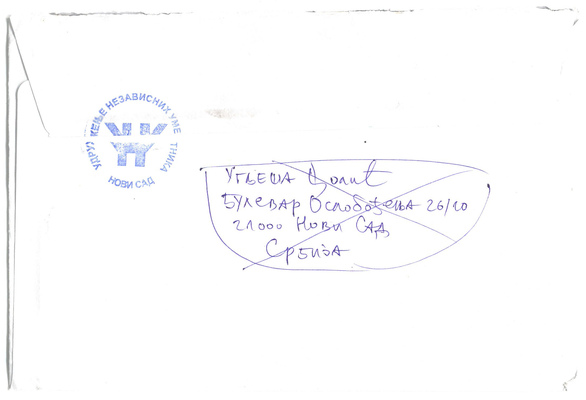 УДРУЖЕЊЕ НЕЗАВИСНИХ УМЕТНИКА
НОВИ САД
УГЉЕША
БУЛЕВАР Ослобођења 26/10
21000 Нови САД
СРБИЈА